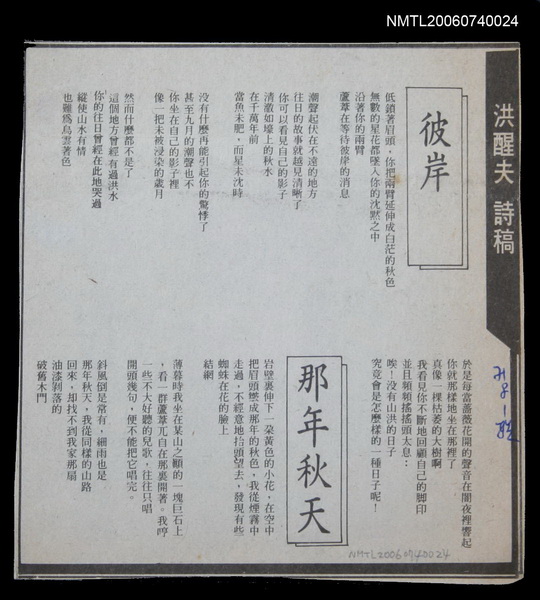 NMTL20060740024
洪醒夫 詩稿
彼岸
低鎖著眉頭，你把兩臂延伸成白茫的秋色
無數的星花都墜入你的沈默之中
沿著你的兩臂
蘆葦在等待彼岸的消息
潮聲起伏在不遠的地方
往日的故事就越見清晰了
你可以看見自己的影子
清澈如壕上的秋水
在千萬年前
當魚未肥，而星未沈時
沒有什麼再能引起你的驚悸了
甚至九月的潮聲也不
你坐在自己的影子裡
像一把未被浸染的歲月
然而什麼都不是了
這個地方曾經有過洪水
你的往日曾經在此地哭過
縱使山水有情
也雖爲烏雲著色
於是每當薔薇花開的聲音在闇夜裡響起
你就那樣地坐在那裡了
真像一棵枯萎的大樹啊
我看見你不斷地回顧自己的脚印
並且頻頻搖搖頭太息：
唉！沒有山洪的日子
究竟會是怎麼樣的一種日子呢！
那年秋天
岩壁裏伸下一朶黃色的小花，在空中
把眉頭蹙成那年的秋色，我從煙霧中
走過，不經意地抬頭望去，發現有些
蜘蛛在花的臉上
結網
薄暮時我坐在某山之顚的一塊巨石上
，看一群蘆葦兀自在那裏開著。我哼
一些不大好聽的兒歌，往往只唱
開頭幾句，便不能把它唱完。
斜風倒是常有，細雨也是
那年秋天，我從同樣的山路
回來，却找不到我家那扇
油漆剝落的
破舊木門
NMTL20060740024